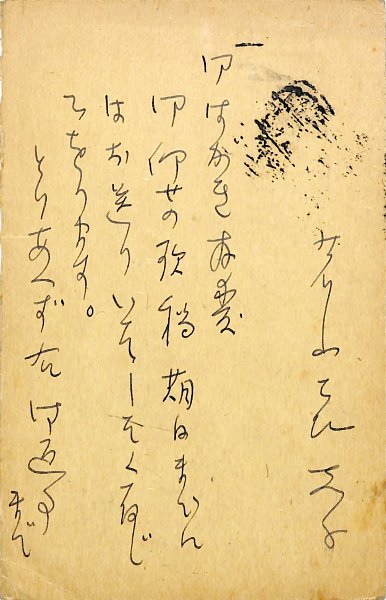 御はがき拝受
御仰せの歌稿期日までに
はお送りいたしたく存じ
てをります。
とりあへず右御返事
まで